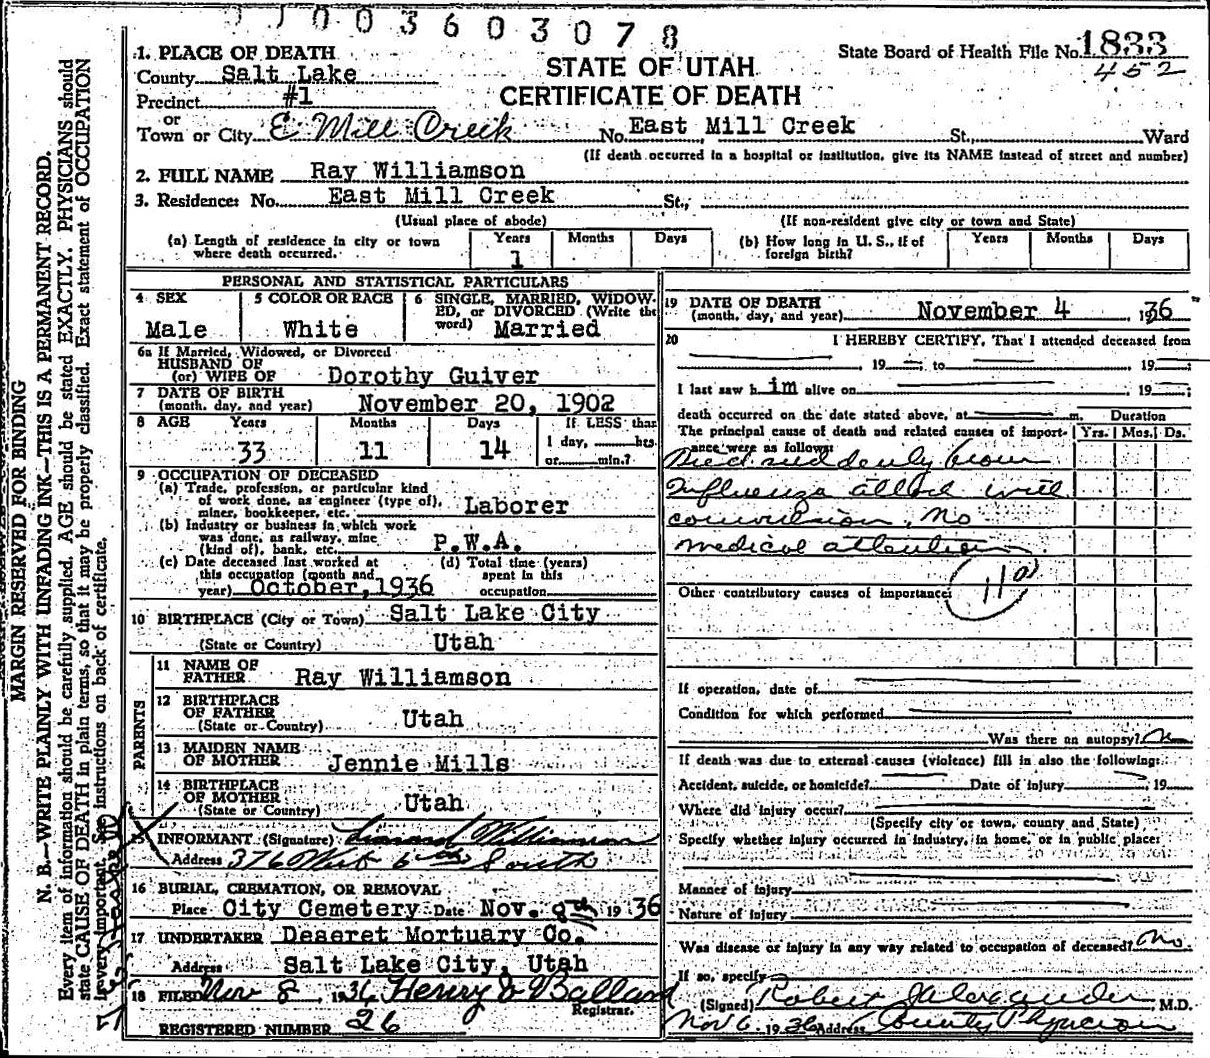 003603078
1. PLACE OF DEATH
County Salt Lake
Precinct #1
or
Town or City E Mill Creek
STATE OF UTAH
CERTIFICATE OF DEATH
State Board of Health File No. 1833
452
No. East Mill Creek St., Ward
(If death occurred in a hospital or institution, give its NAME instead of street and number)
2. FULL NAME Ray Williamson
3. Residence: No. East Mill Creek St.,
(Usual place of abode) (If non-resident give city or town and State)
(a) Length of residence in city or town where death occurred. Years 1 Months Days
(b) How long in U. S., if of foreign birth? Years Months Days
PERSONAL AND STATISTICAL PARTICULARS
4 SEX Male
5 COLOR OR RACE White
6 SINGLE, MARRIED, WIDOWED, or DIVORCED (Write the word) Married
6a If Married, Widowed, or Divorced
HUSBAND OF
(or) WIFE OF Dorothy Guiver
7 DATE OF BIRTH
(month, day, and year) November 20, 1902
8 AGE Years 33 Months 11 Days 14
If LESS than 1 day, hrs. or min.?
9 OCCUPATION OF DECEASED
(a) Trade, profession, or particular kind
of work done, as engineer (type of),
miner, bookkeeper, etc. Laborer
(b) Industry or business in which work
was done, as railway, mine
(kind of), bank, etc. P.W.A.
(c) Date deceased last worked at
this occupation (month and
year) October, 1936
(d) Total time (years)
spent in this
occupation
10 BIRTHPLACE (City or Town) Salt Lake City
(State or Country) Utah
PARENTS
11 NAME OF
FATHER Ray Williamson
12 BIRTHPLACE
OF FATHER
(State or Country) Utah
13 MAIDEN NAME
OF MOTHER Jennie Mills
14 BIRTHPLACE
OF MOTHER
(State or Country) Utah
15 INFORMANT (Signature) Williamson
Address 376 West 6th South
16 BURIAL, CREMATION, OR REMOVAL
Place City Cemetery Date Nov. 8th 1936
17 UNDERTAKER Deseret Mortuary Co.
Address Salt Lake City, Utah
18 FILED Nov 8, 1936 Henry J Ballard
Registrar.
REGISTERED NUMBER 26
19 DATE OF DEATH
(month, day, and year) November 4, 1936
20 I HEREBY CERTIFY, That I attended deceased from
, 19 ; to , 19 ;
I last saw him alive on , 19 ;
death occurred on the date stated above, at m. Duration
The principal cause of death and related causes of importance were as follows: Yrs. Mos. Ds.
Died suddenly from
Influenza attack with
convulsion. No
medical attention
11a
Other contributory causes of importance:
If operation, date of
Condition for which performed
Was there an autopsy? No
If death was due to external causes (violence) fill in also the following:
Accident, suicide, or homicide? Date of injury , 19
Where did injury occur?
(Specify city or town, county and State)
Specify whether injury occurred in industry, in home, or in public place:
Manner of injury
Nature of injury
Was disease or injury in any way related to occupation of deceased? No
If so, specify
(Signed) Robert Alexander, M.D.
Nov 6, 1936 Address County Physician
MARGIN RESERVED FOR BINDING
N. B.—WRITE PLAINLY WITH UNFADING INK—THIS IS A PERMANENT RECORD.
Every item of information should be carefully supplied. AGE should be stated EXACTLY. PHYSICIANS should
state CAUSE OF DEATH in plain terms, so that it may be properly classified. Exact statement of OCCUPATION
is very important. See instructions on back of certificate.